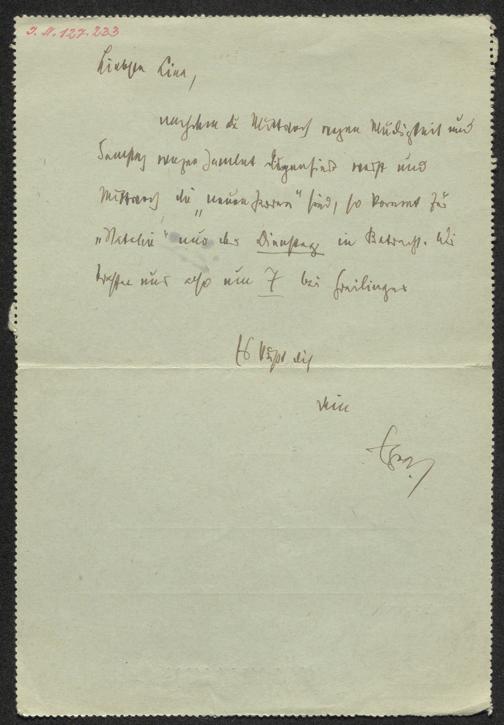 J.N. 127.233
Liebste Lina,
nachdem du Mittwoch wegen Müdigkeit und
Samstag wegen Hamlet und
Mittwoch die „neuen Herren“ sind, so kommt für
„Natalie“ nur der Dienstag in Betracht. Wir
treffen uns also um 7 bei Freilinger
Es küßt dich
dein
Egon